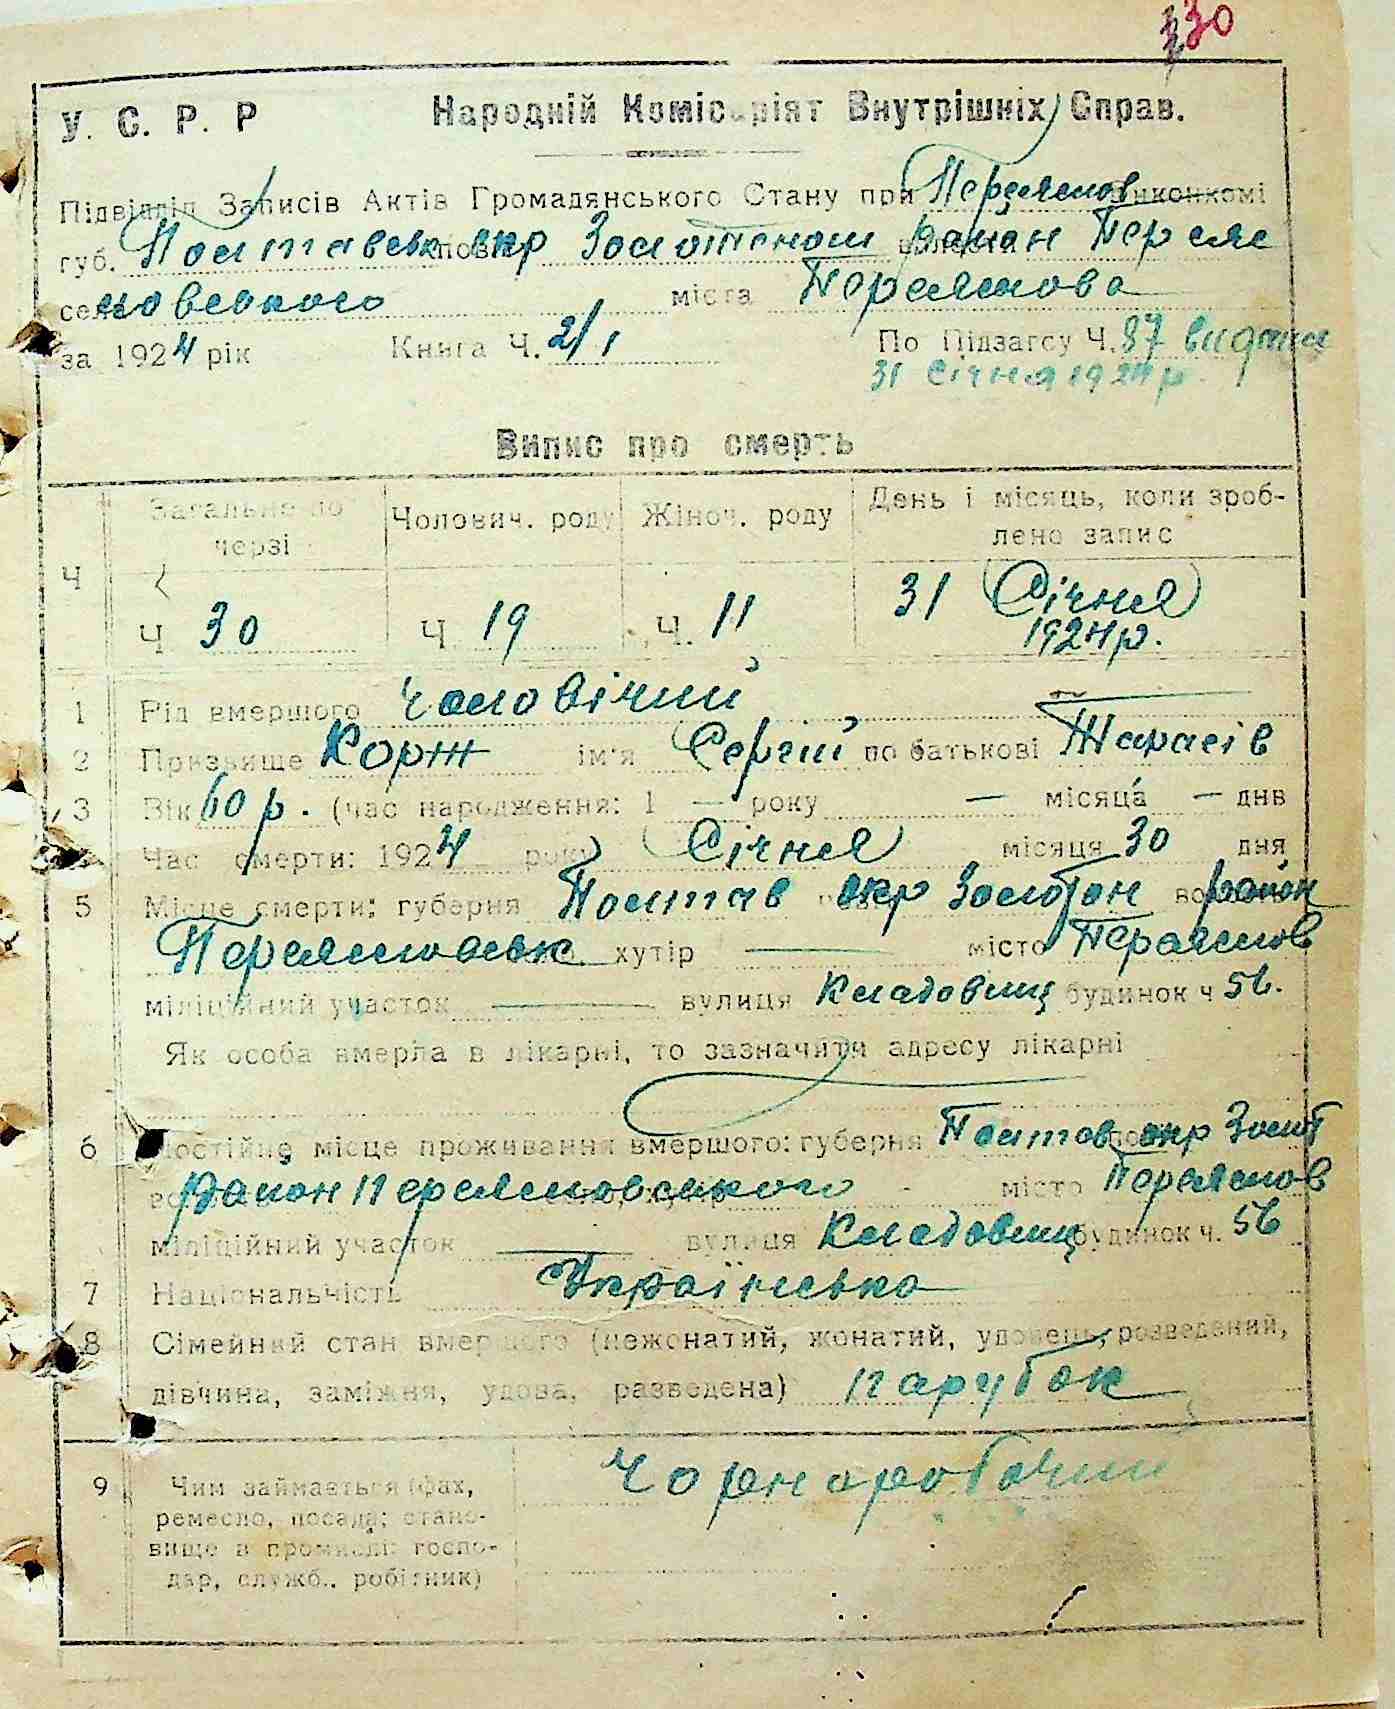 330
У. С. Р. Р Народній Комісаріят Внутрішніх Справ.
Підвідділ Записів Актів Громадянського Стану при Переяслов виконкомі
губ. Полтавськ окр Золотонош район Переяс
села ловського міста Переяслова
за 1924 рік Книга Ч. 2/1 По Підзагсу Ч. 87 видана
31 Січня 1924 р.
Випис про смерть
Ч Загальне по черзі Чолович. роду Жіноч. роду День і місяць, коли зроблено запис
Ч 30 Ч 19 Ч. 11 31 Січня
1924 р.
1 Рід вмершого чоловічий
2 Призвище Корж ім'я Сергій по батькові Тарасів
3 Вік 60 р. (час народження: 1 — року — місяца — днв
Час смерти: 1924 року Січня місяця 30 дня
5 Місце смерти: губерня Полтав окр Золотон район
Переясловськ хутір — місто Переяслов
міліційний участок — вулиця Кладовищ будинок ч 56.
Як особа вмерла в лікарні, то зазначити адресу лікарні
6 Постійне місце проживання вмершого: губерня Полтав окр Золот
район Переясловського місто Переяслов
міліційний участок — вулиця Кладовищ будинок ч. 56
7 Національність Українська
8 Сімейний стан вмершого (нежонатий, жонатий, удовець, розведений,
дівчина, заміжня, удова, разведена) парубок
9 Чим займається (фах, Чорноробочий
ремесло, посада; стано-
вище в промислі: госпо-
дар, служб., робітник)